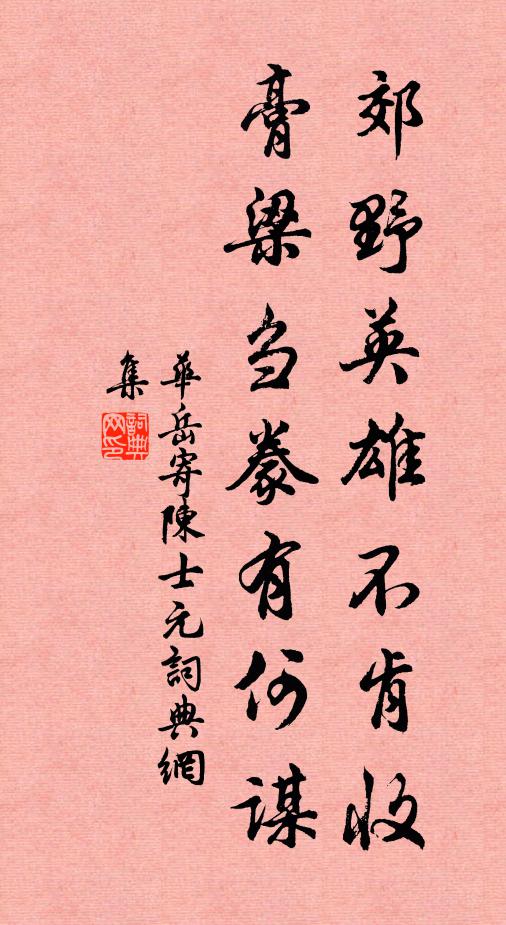 郊野英雄不肯收
膏粱刍豢有何謀
華岳寄陳士元詞典網
集
詞典网印